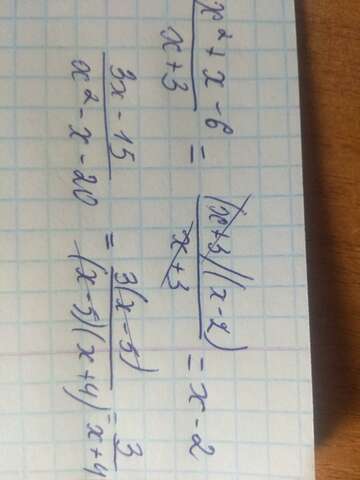 x² + x - 6 / x + 3 = (x+3)(x-2) / x+3 = x - 2
3x - 15 / x² - x - 20 = 3(x-5) / (x-5)(x+4) = 3 / x+4